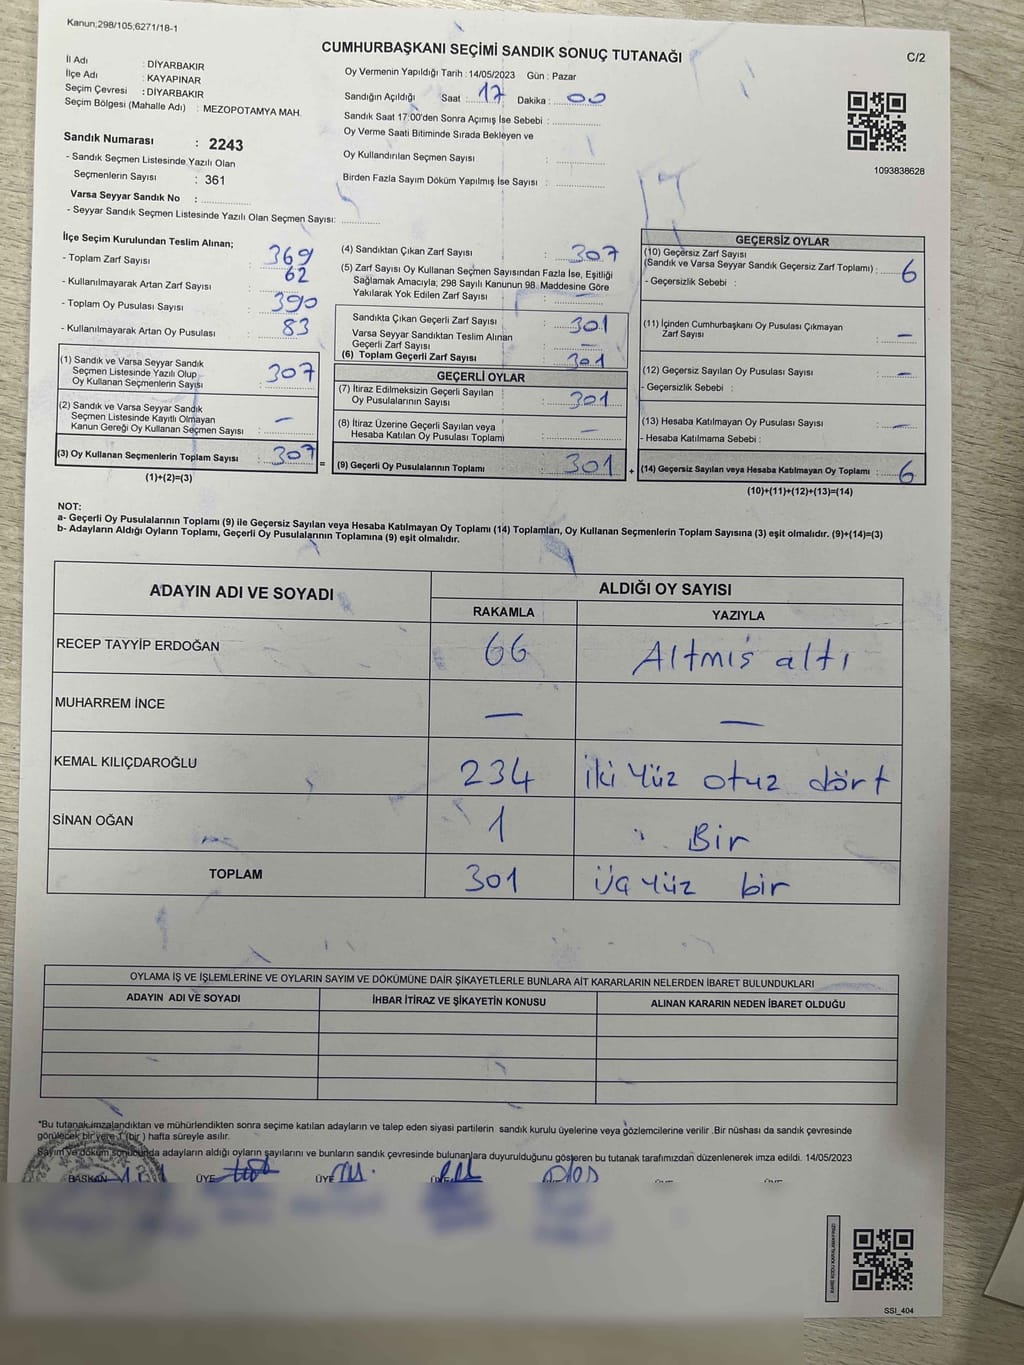 Kanun;298/105;6271/18-1
CUMHURBAŞKANI SEÇİMİ SANDIK SONUÇ TUTANAĞI
C/2
İl Adı : DİYARBAKIR
İlçe Adı : KAYAPINAR
Seçim Çevresi : DİYARBAKIR
Seçim Bölgesi (Mahalle Adı) : MEZOPOTAMYA MAH.
Oy Vermenin Yapıldığı Tarih : 14/05/2023 Gün : Pazar
Sandığın Açıldığı Saat : 17 Dakika : 00
Sandık Saat 17:00'den Sonra Açımış İse Sebebi :
Oy Verme Saati Bitiminde Sırada Bekleyen ve
Oy Kullandırılan Seçmen Sayısı :
Birden Fazla Sayım Döküm Yapılmış İse Sayısı :
1093838628
Sandık Numarası : 2243
- Sandık Seçmen Listesinde Yazılı Olan
Seçmenlerin Sayısı : 361
Varsa Seyyar Sandık No :
- Seyyar Sandık Seçmen Listesinde Yazılı Olan Seçmen Sayısı:
İlçe Seçim Kurulundan Teslim Alınan;
- Toplam Zarf Sayısı : 369
- Kullanılmayarak Artan Zarf Sayısı : 62
- Toplam Oy Pusulası Sayısı : 390
- Kullanılmayarak Artan Oy Pusulası : 83
(1) Sandık ve Varsa Seyyar Sandık
Seçmen Listesinde Yazılı Olup
Oy Kullanan Seçmenlerin Sayısı : 307
(2) Sandık ve Varsa Seyyar Sandık
Seçmen Listesinde Kayıtlı Olmayan
Kanun Gereği Oy Kullanan Seçmen Sayısı : —
(3) Oy Kullanan Seçmenlerin Toplam Sayısı : 307
(1)+(2)=(3)
(4) Sandıktan Çıkan Zarf Sayısı : 307
(5) Zarf Sayısı Oy Kullanan Seçmen Sayısından Fazla İse, Eşitliği
Sağlamak Amacıyla; 298 Sayılı Kanunun 98. Maddesine Göre
Yakılarak Yok Edilen Zarf Sayısı : —
Sandıkta Çıkan Geçerli Zarf Sayısı : 301
Varsa Seyyar Sandıktan Teslim Alınan
Geçerli Zarf Sayısı : —
(6) Toplam Geçerli Zarf Sayısı : 301
GEÇERLİ OYLAR
(7) İtiraz Edilmeksizin Geçerli Sayılan
Oy Pusulalarının Sayısı : 301
(8) İtiraz Üzerine Geçerli Sayılan veya
Hesaba Katılan Oy Pusulası Toplamı : —
= (9) Geçerli Oy Pusulalarının Toplamı : 301
GEÇERSİZ OYLAR
(10) Geçersiz Zarf Sayısı
(Sandık ve Varsa Seyyar Sandık Geçersiz Zarf Toplamı) : 6
- Geçersizlik Sebebi :
(11) İçinden Cumhurbaşkanı Oy Pusulası Çıkmayan
Zarf Sayısı : —
(12) Geçersiz Sayılan Oy Pusulası Sayısı : —
- Geçersizlik Sebebi :
(13) Hesaba Katılmayan Oy Pusulası Sayısı : —
- Hesaba Katılmama Sebebi :
+ (14) Geçersiz Sayılan veya Hesaba Katılmayan Oy Toplamı : 6
(10)+(11)+(12)+(13)=(14)
NOT:
a- Geçerli Oy Pusulalarının Toplamı (9) ile Geçersiz Sayılan veya Hesaba Katılmayan Oy Toplamı (14) Toplamları, Oy Kullanan Seçmenlerin Toplam Sayısına (3) eşit olmalıdır. (9)+(14)=(3)
b- Adayların Aldığı Oyların Toplamı, Geçerli Oy Pusulalarının Toplamına (9) eşit olmalıdır.
ADAYIN ADI VE SOYADI ALDIĞI OY SAYISI
RAKAMLA YAZIYLA
RECEP TAYYİP ERDOĞAN 66 Altmış altı
MUHARREM İNCE — —
KEMAL KILIÇDAROĞLU 234 iki Yüz otuz dört
SİNAN OĞAN 1 Bir
TOPLAM 301 üç Yüz bir
OYLAMA İŞ VE İŞLEMLERİNE VE OYLARIN SAYIM VE DÖKÜMÜNE DAİR ŞİKAYETLERLE BUNLARA AİT KARARLARIN NELERDEN İBARET BULUNDUKLARI
ADAYIN ADI VE SOYADI İHBAR İTİRAZ VE ŞİKAYETİN KONUSU ALINAN KARARIN NEDEN İBARET OLDUĞU
*Bu tutanak imzalandıktan ve mühürlendikten sonra seçime katılan adayların ve talep eden siyasi partilerin sandık kurulu üyelerine veya gözlemcilerine verilir .Bir nüshası da sandık çevresinde
görülecek bir yere 1 (bir ) hafta süreyle asılır.
Sayım ve döküm sonucunda adayların aldığı oyların sayılarını ve bunların sandık çevresinde bulunanlara duyurulduğunu gösteren bu tutanak tarafımızdan düzenlenerek imza edildi. 14/05/2023
BAŞKAN ÜYE ÜYE
SSİ_404